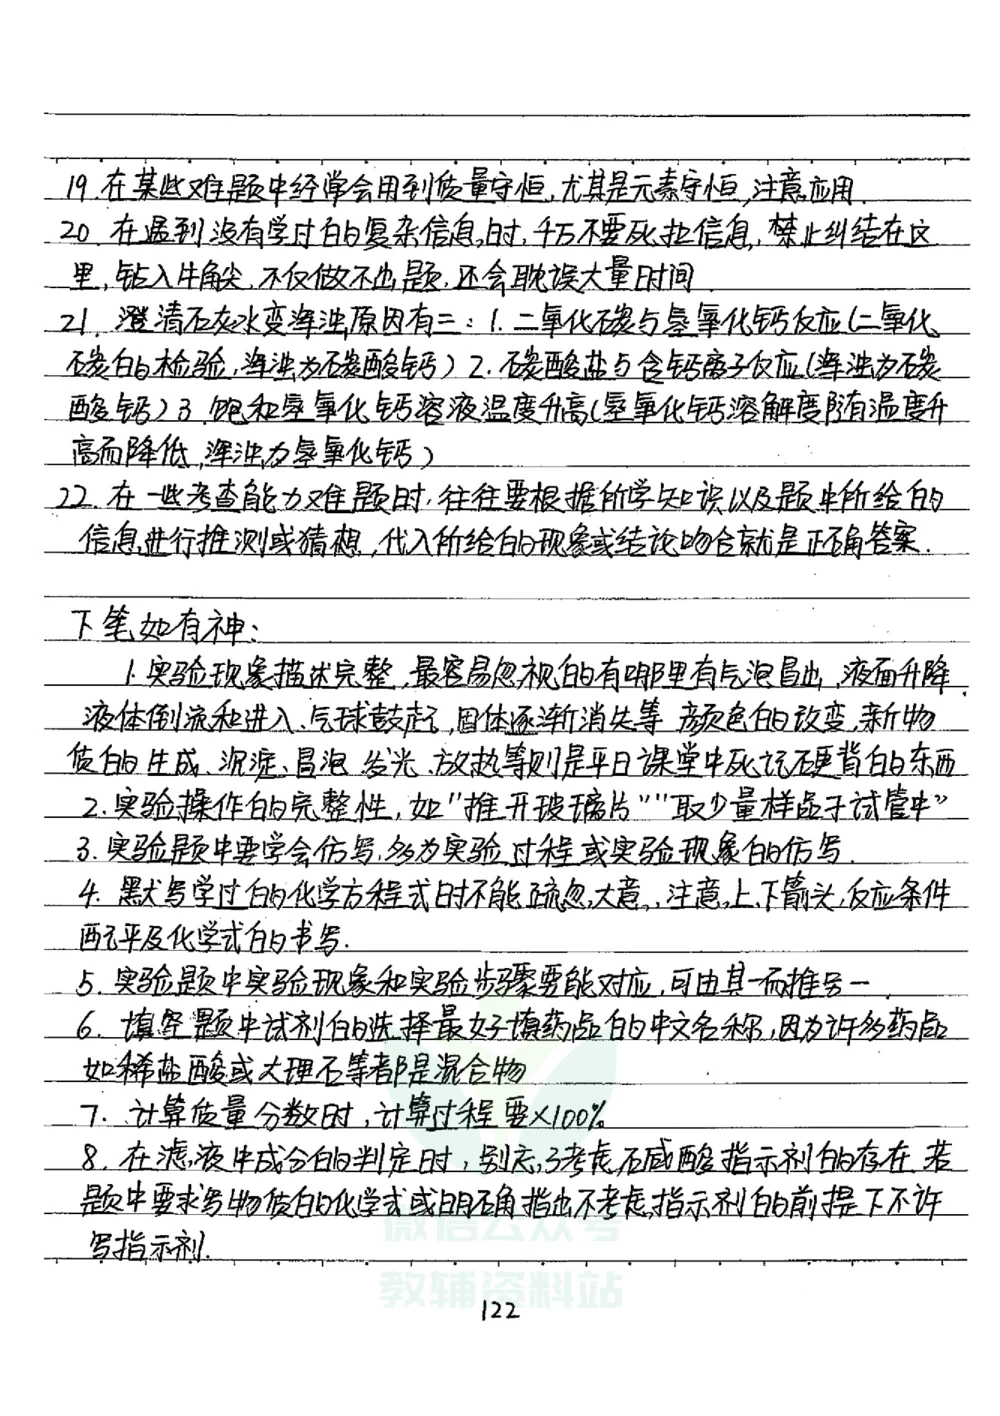 19.在某些难题中经常会用到质量守恒,尤其是元素守恒,注意应用.
20.在遇到没有学过的复杂信息时,千万不要死扯信息,禁止纠结在这
里,钻入牛角尖,不仅做不出题,还会耽误大量时间.
21.澄清石灰水变浑浊原因有三:1.二氧化碳与氢氧化钙反应(二氧化
碳的检验,浑浊为碳酸钙)2.碳酸盐与含钙离子反应(浑浊为碳
酸钙)3.饱和氢氧化钙溶液温度升高(氢氧化钙溶解度随有温度升
高而降低,浑浊为氢氧化钙)
22.在一些考查能力难题时,往往要根据所学知识以及题中所给的
信息进行推测或猜想,代入所给的现象或结论吻合就是正确答案.
下笔如有神:
1.实验现象描述完整,最容易忽视的有哪里有气泡冒出,液面升降,
液体倒流和进入、气球鼓起,固体逐渐消失等 颜色的改变,新物
质的生成、沉淀、冒泡、发光、放热等则是平日课堂中死记硬背的东西
2.实验操作的完整性,如"推开玻璃片""取少量样品于试管中"
3.实验题中要学会仿写,多为实验过程或实验现象的仿写.
4.默写学过的化学方程式时不能疏忽大意,注意上、下箭头,反应条件
配平及化学式的书写.
5.实验题中实验现象和实验步骤要能对应,可由其一而推另一.
6.填空题中试剂的选择最好填药品的中文名称,因为许多药品
如稀盐酸或大理石等都是混合物
7.计算质量分数时,计算过程要×100%
8.在滤液中成分的判定时,别忘了考虑石碱酸指示剂的存在.若
题中要求写物质的化学式或明确指出不考虑指示剂的前提下不许
写指示剂.
微信公众号
教辅资料站
122